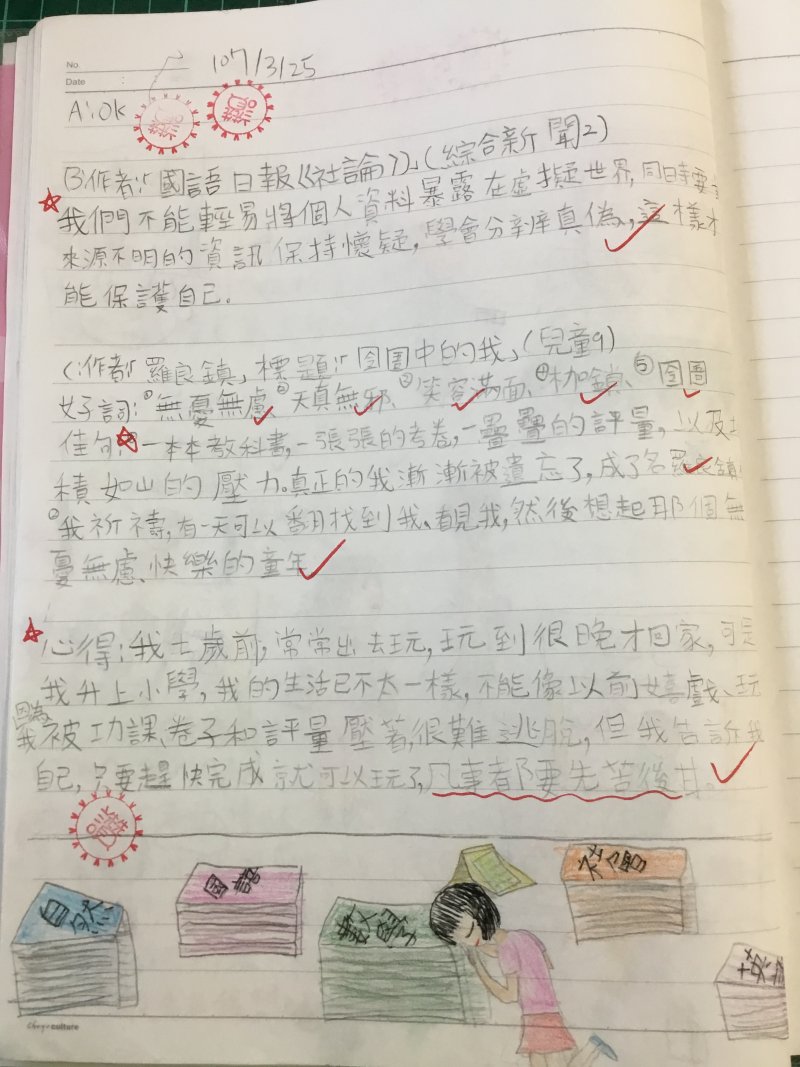 No.
107/3/25
Date :
A:OK
B:作者:「國語日報《社論》」(綜合新聞2)
我們不能輕易將個人資料暴露在虛擬世界,同時要
來源不明的資訊保持懷疑,學會分辨真偽,這樣才
能保護自己。
C:作者「羅良鎮」標題:「囹圄中的我」(兒童9)
好詞:①無憂無慮、②天真無邪、③笑容滿面、④枷鎖、⑤囹圄
佳句:①一本本教科書,一張張的考卷,一疊疊的評量,以及
積如山的壓力。真正的我漸漸被遺忘了,成了名羅良鎮
②我祈禱,有一天可以翻找到我、看見我,然後想起那個無
憂無慮、快樂的童年
心得:我七歲前,常常出去玩,玩到很晚才回家,可是
我升上小學,我的生活已不太一樣,不能像以前嬉戲、玩
因為我被功課、卷子和評量壓著,很難逃脫,但我告訴我
自己,只要趕快完成就可以玩了,凡事都要先苦後甘。
自然
國語
數學
社會
英
culture